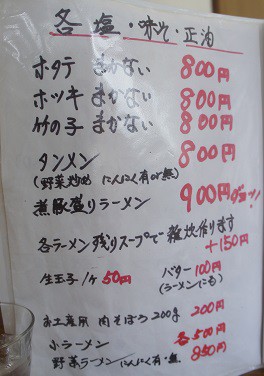 各塩・味そ・正油
ホタテ まかない 800円
ホッキ まかない 800円
竹の子 まかない 800円
タンメン 800円
(野菜炒め にんにく有or無)
煮豚盛りラーメン 900円
各ラーメン残りスープで雑炊作ります
+150円
生玉子1ヶ 50円 バター 100円
(ラーメンにも)
お土産用 肉そぼろ 200g 200円
小ラーメン 各500円
野菜ラーメン にんにく有・無 850円